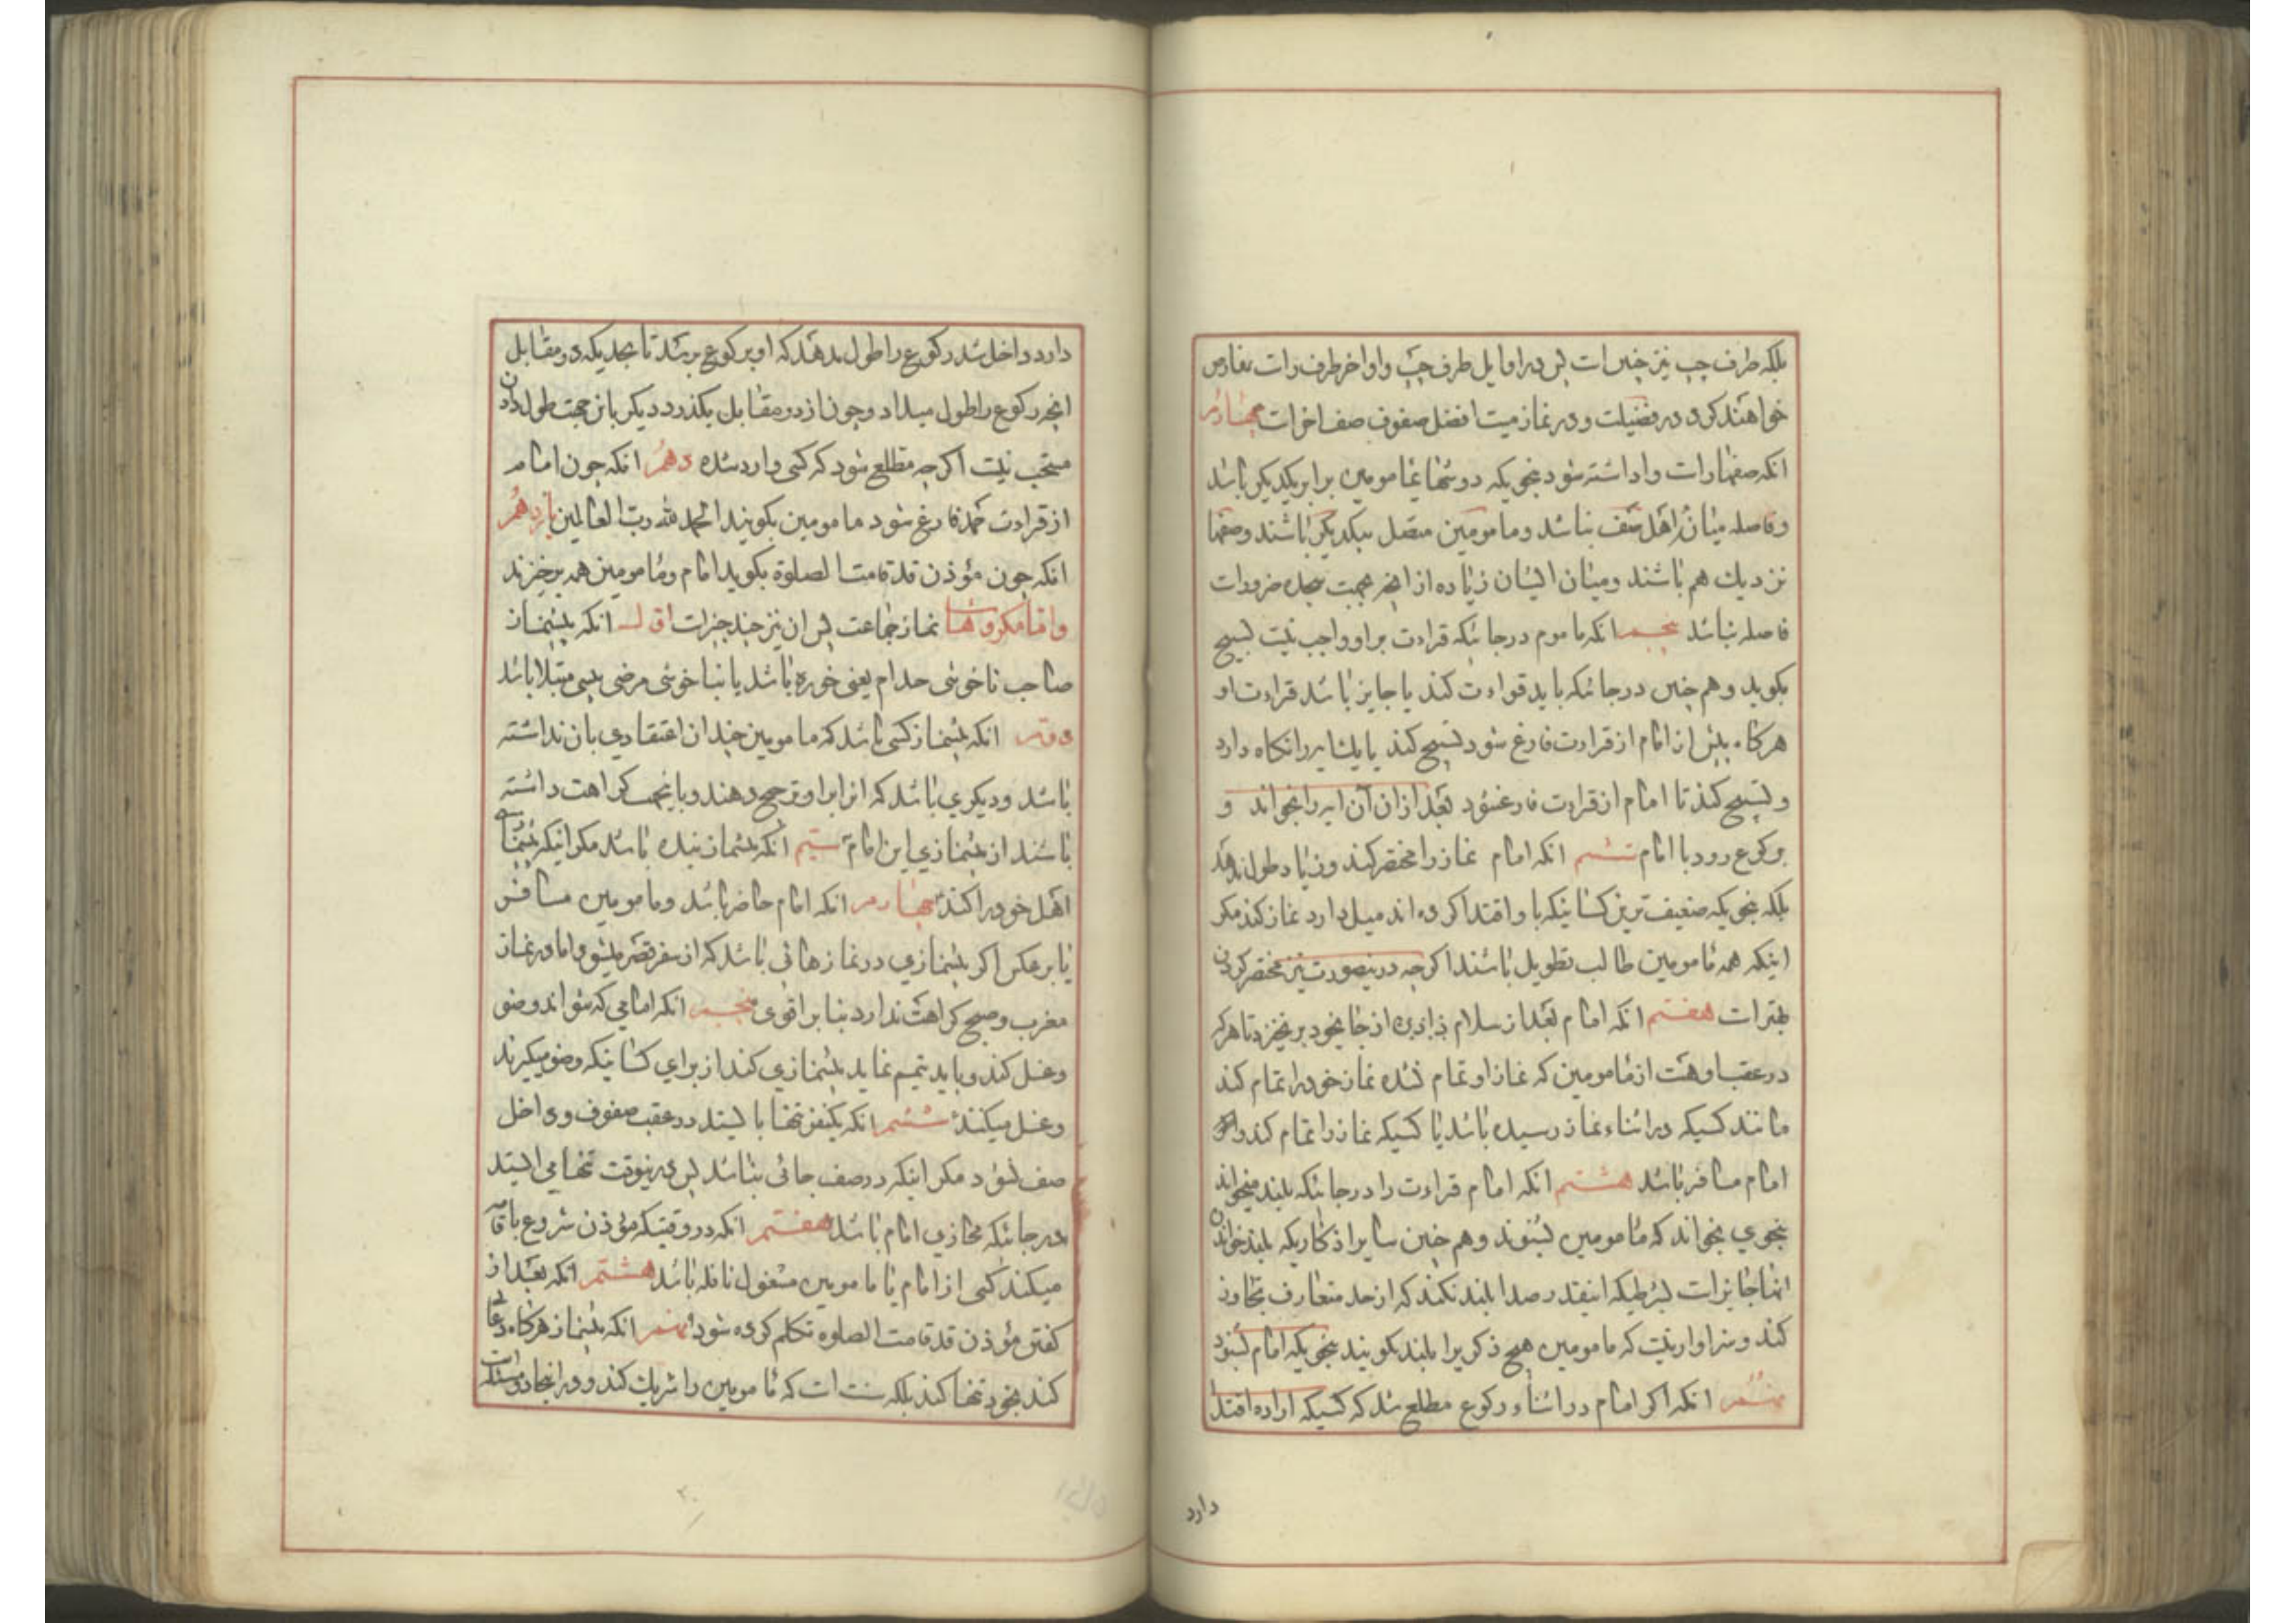 بلکه طرف چپ نیز چنین است پس در اوایل طرف چپ و اواخر طرف راست تعارض
خواهند کرد در فضیلت و در نماز میت افضل صفوف صف اخر است چهارم
انکه صفها راست واداشته شود بنحویکه دوشها مامومین برابر یکدیکر باشد
و فاصله میان اهل صف نباشد و مامومین متصل بیکدیکر باشند و صفها
نزدیک هم باشند و میان ایشان زیاده از انچه بجهت سجده ضرور است
فاصله نباشد پنجم انکه ماموم در جائیکه قراءت بر او واجب نیست تسبیح
بکوید و هم چنین در جائیکه باید قراءت کند یا جایز باشد قراءت او
هرکاه پیش از امام از قراءت فارغ شود تسبیح کند یا یک ایه را نکاه دارد
و تسبیح کند تا امام از قراءت فارغ شود بعد از ان آن ایه را بخواند و
برکوع رود با امام ششم انکه امام نماز را مختصر کند و زیاد طول ندهد
بلکه بنحویکه ضعیف ترین کسانیکه با و اقتدا کرده اند میل دارد نماز کند مکر
اینکه همه مامومین طالب تطویل باشند اکرچه در ینصورت نیز مختصر کردن
بهتر است هفتم انکه امام بعد از سلام دادن از جای خود بر نخیزد تا هر که
در عقب او هست از مامومین که نماز او تمام نشده نماز خود را تمام کند
مانند کسیکه در اثناء نماز رسیده باشد یا کسیکه نماز را تمام کند و
امام مسافر باشد هشتم انکه امام قراءت را در جائیکه بلند میخواند
بنحوی بخواند که مامومین بشنوند و هم چنین سایر اذکاریکه بلند خواندن
انها جایز است بشرطیکه اینقدر صدا بلند نکند که از حد متعارف تجاوز
کند و سزاوار نیست که مامومین هیچ ذکریرا بلند بکویند بنحویکه امام بشنود
نهم انکه اکر امام در اثناء رکوع مطلع شد که کسیکه اراده اقتدا
دارد
دارد داخل شد رکوع را طول بدهد که او برکوع برسد تا بحدیکه دو مقابل
انچه رکوع را طول میداد و چون از دو مقابل بکذرد دیکر باین جهت طول دادن
مستحب نیست اکرچه مطلع شود که کسی وارد شده دهم انکه چون امام
از قراءت حمد فارغ شود مامومین بکویند الحمد لله رب العالمین یازدهم
انکه چون مؤذن قد قامت الصلوة بکوید امام و مامومین همه برخیزند
و اما مکروهات نماز جماعت پس ان نیز چند چیز است اول انکه پیشنماز
صاحب ناخوشی جذام یعنی خوره باشد یا بناخوشی مرضی پیسی مبتلا باشد
دوم انکه پیشنماز کسی باشد که مامومین چندان اعتقادی بان نداشته
باشد و دیکری باشد که انرا بر او ترجیح دهند و باینجهت کراهت داشته
باشند از پیشنمازی این امام سیم انکه پیشنماز بنده باشد مکر اینکه پیشنمازی
اهل خود را کند چهارم انکه امام حاضر باشد و مامومین مسافر
یا برعکس اکر پیشنمازی در نمازهائی باشد که از سفر قصر میشود اما در نماز
مغرب و صبح کراهت ندارد بنابر اقوی پنجم انکه امامی که نتواند وضو
و غسل کند و باید تیمم نماید پیشنمازی کند از برای کسانیکه وضو میکیرند
و غسل میکنند ششم انکه یکنفر تنها بایستد در عقب صفوف و داخل
صف نشود مکر اینکه در صف جائی نباشد پس در ینوقت تنها می ایستد
در جائیکه محاذی امام باشد هفتم انکه در وقتیکه مؤذن شروع باقامه
میکند کسی از امام یا مامومین مشغول نافله باشد هشتم انکه بعد از
کفتن مؤذن قد قامت الصلوه تکلم کرده شود نهم انکه پیشنماز هرکاه دعائی
کند بخود تنها کند بلکه سنت است که مامومین را شریک کند و در اینجا دو مسئله است